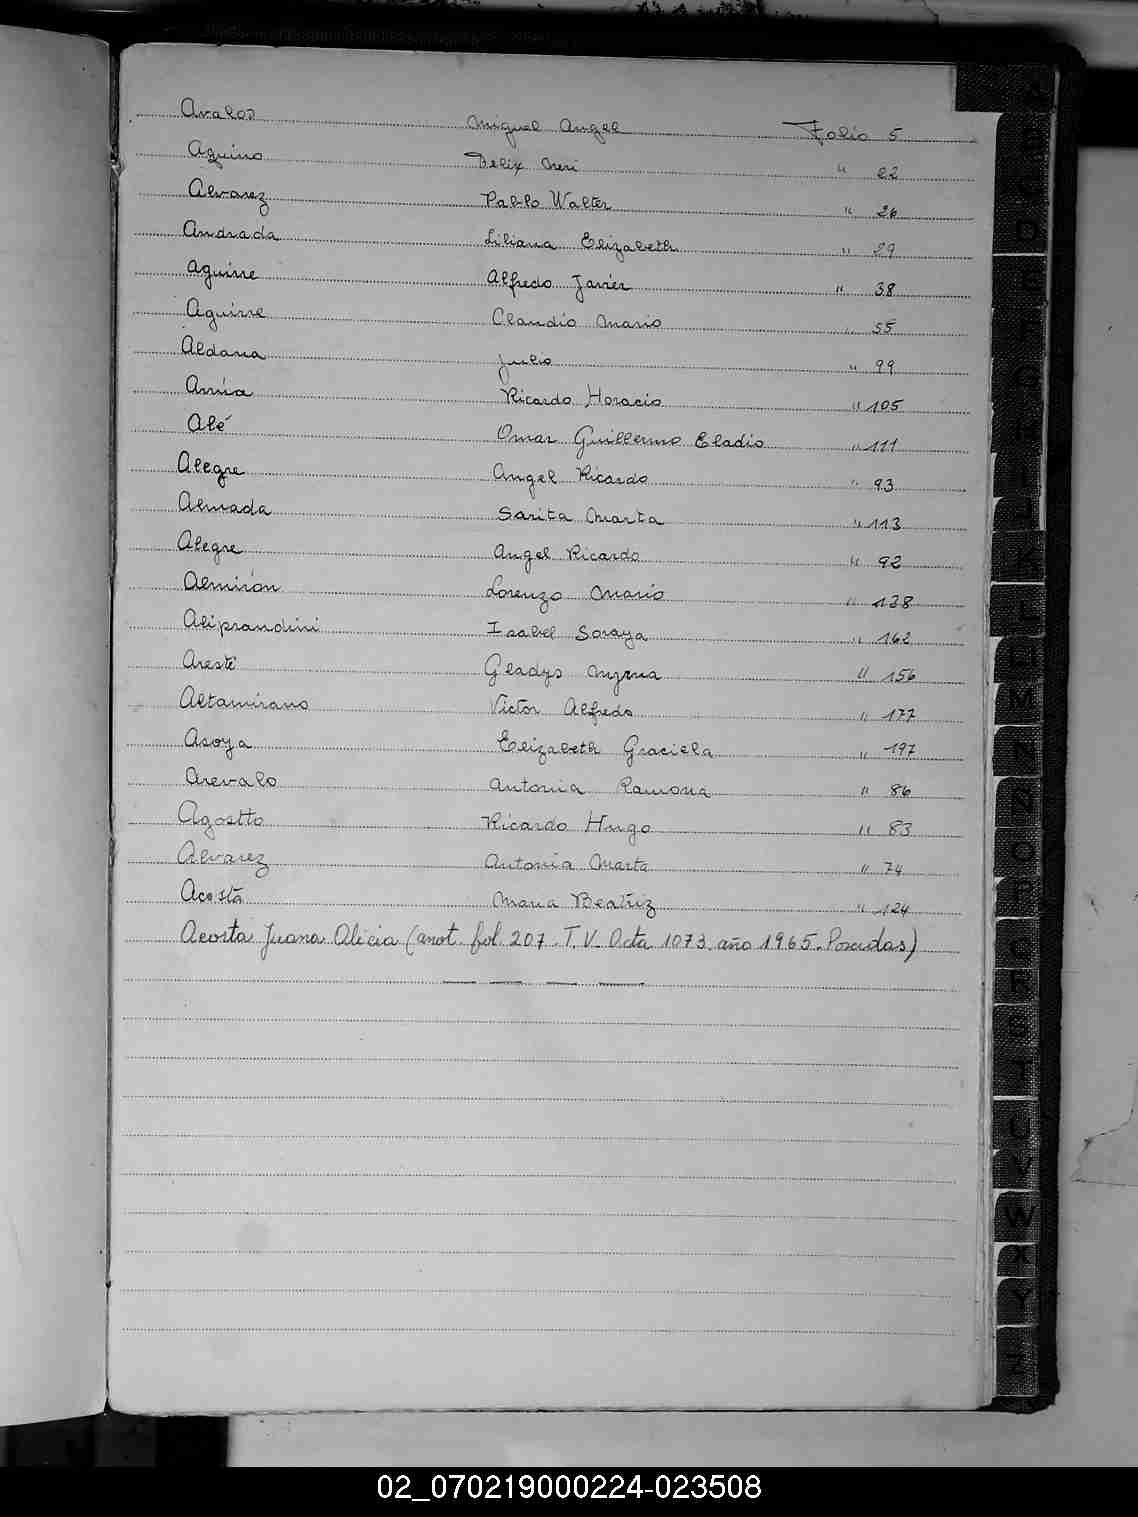 Avalos Miguel Angel Folio 5
Aquino Delix Neri " 22
Alvarez Pablo Walter " 26
Andrada Liliana Elizabeth " 29
Aguirre Alfredo Javier " 38
Aguirre Claudio Mario " 55
Aldana Julio " 99
Ricardo Horacio " 105
Alé Omar Guillermo Eladio " 111
Alegre Angel Ricardo " 93
Almada Sarita Marta " 113
Alegre Angel Ricardo " 92
Almirón Lorenzo Mario " 138
Aliprandini Isabel Soraya " 162
Gladys Myrna " 156
Altamirano Victor Alfredo " 177
Asoya Elizabeth Graciela " 197
Arevalo Antonia Ramona " 86
Agostto Ricardo Hugo " 83
Alvarez Antonia Marta " 74
Acosta Maria Beatriz " 124
Acosta Juana Alicia (anot. fol. 207. T. V. Acta 1073 año 1965. Posadas)
02_070219000224-023508